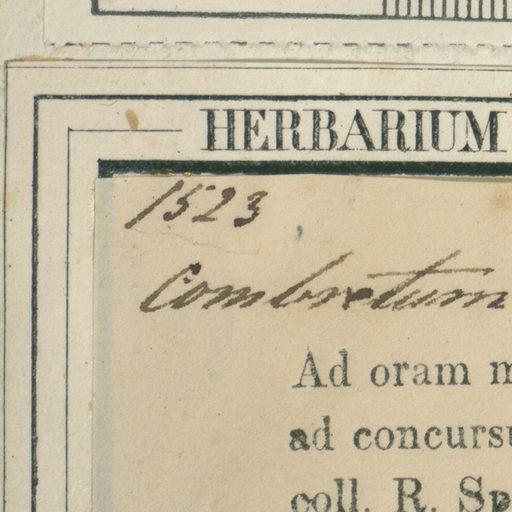 HERBARIUM
1523
Combretum
Ad oram m
ad concursu
coll. R. Sp